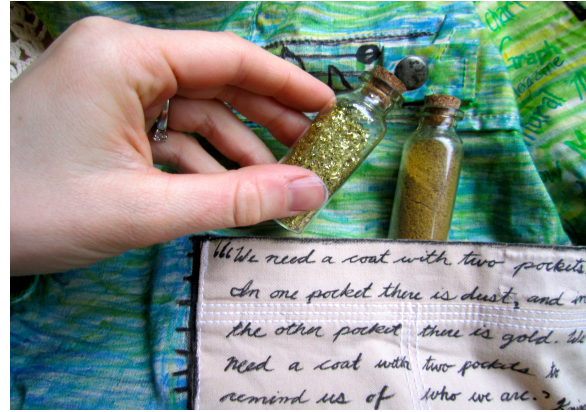 "We need a coat with two pockets
In one pocket there is dust, and in
the other pocket there is gold. We
need a coat with two pockets to
remind us of who we are."